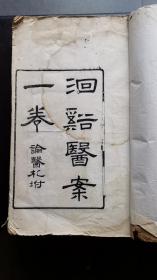 洄谿醫案
一卷
論醫札附